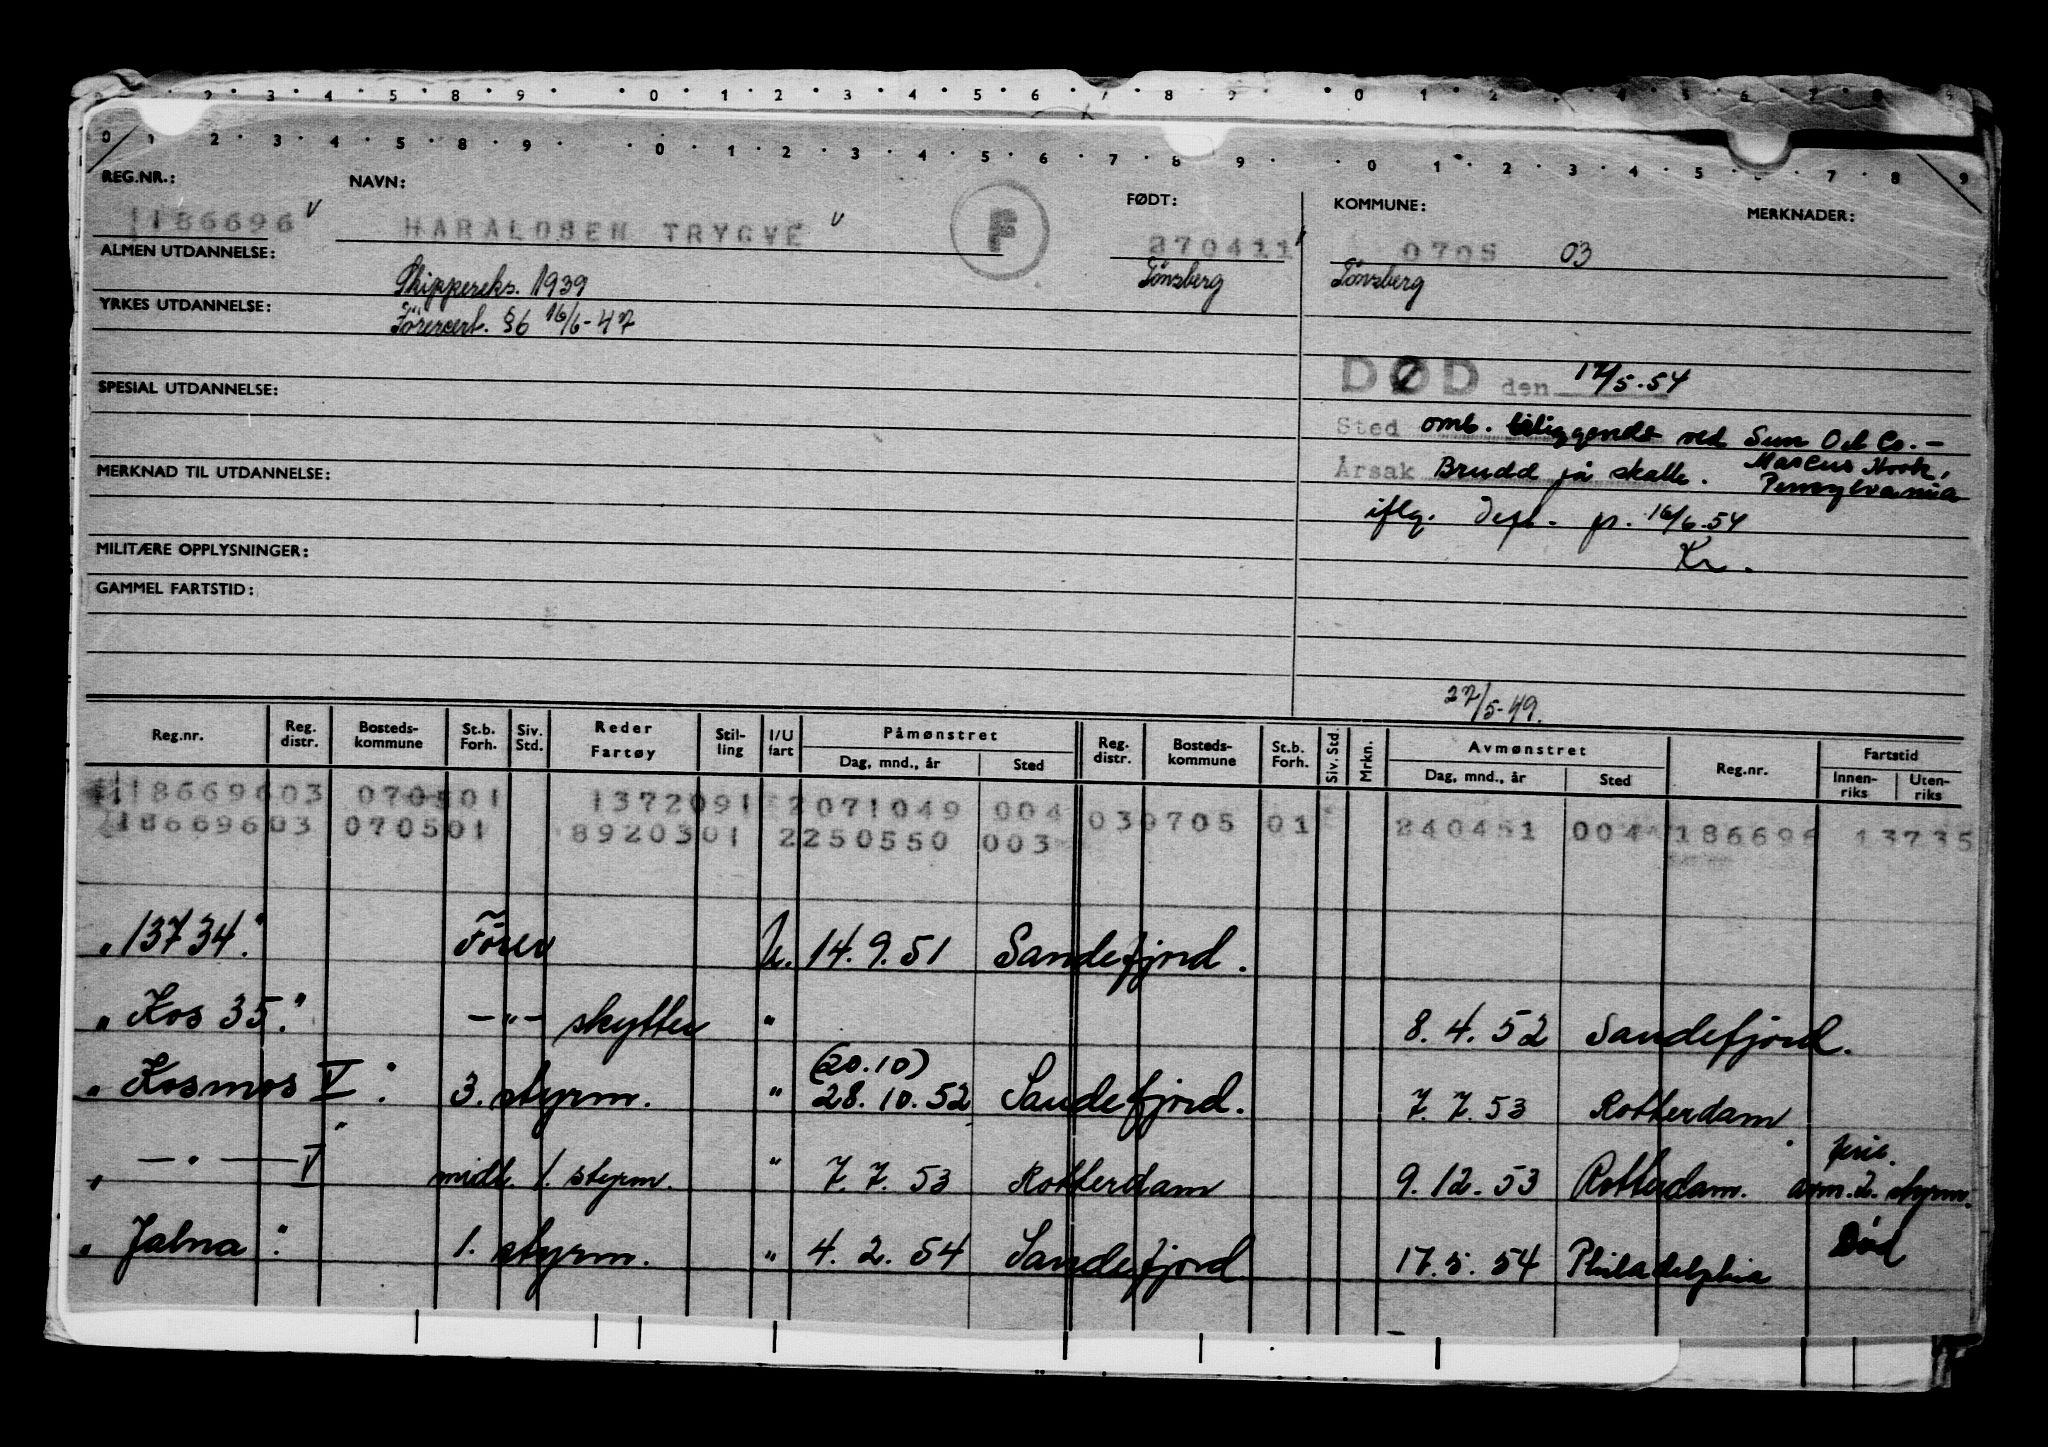 0 1 2 3 4 5 8 9 0 1 2 3 4 5 6 7 8 9 0 1 2 3 4 5 6 7 8 9
REG.NR.: NAVN: FØDT: KOMMUNE: MERKNADER:
1186696 v HARALDSEN TRYGVE v F 270411 0705 03
ALMEN UTDANNELSE: Skippereks. 1939 Tönsberg Tönsberg
YRKES UTDANNELSE: Förercert. §6 16/6-47
DØD den 17/5-54
SPESIAL UTDANNELSE:
Sted omb. beliggende ved Sun Oil Co. -
Marcus Hook,
MERKNAD TIL UTDANNELSE: Årsak Brudd på skalle. Pensylvania
iflg. Dept. pr. 16/6.54
Kr.
MILITÆRE OPPLYSNINGER:
GAMMEL FARTSTID:
27/5-49.
Reg.nr. Reg. distr. Bosteds-kommune St.b. Forh. Siv. Std. Reder Fartøy Stil-ling I/U fart Påmønstret Dag, mnd., år Sted Reg. distr. Bosteds-kommune St.b. Forh. Siv. Std. Mrkn. Avmønstret Dag, mnd., år Sted Reg.nr. Fartstid Innen-riks Uten-riks
118669603 070501 1372091 2071049 004
118669603 070501 8920301 2250550 003 030705 01 240451 004 186696 13735
"13734." Förer U. 14.9.51 Sandefjord.
"Kos 35." -"- skytter " 8.4.52 Sandefjord.
(20.10)
"Kosmos V." 3. styrm. " 28.10.52 Sandefjord. 7.7.53 Rotterdam
" -"- V" midl. 1. styrm. " 7.7.53 Rotterdam 9.12.53 Rotterdam. avm. 2. styrm.
"Jalna". 1. styrm. " 4.2.54 Sandefjord 17.5.54 Philadelphia Död